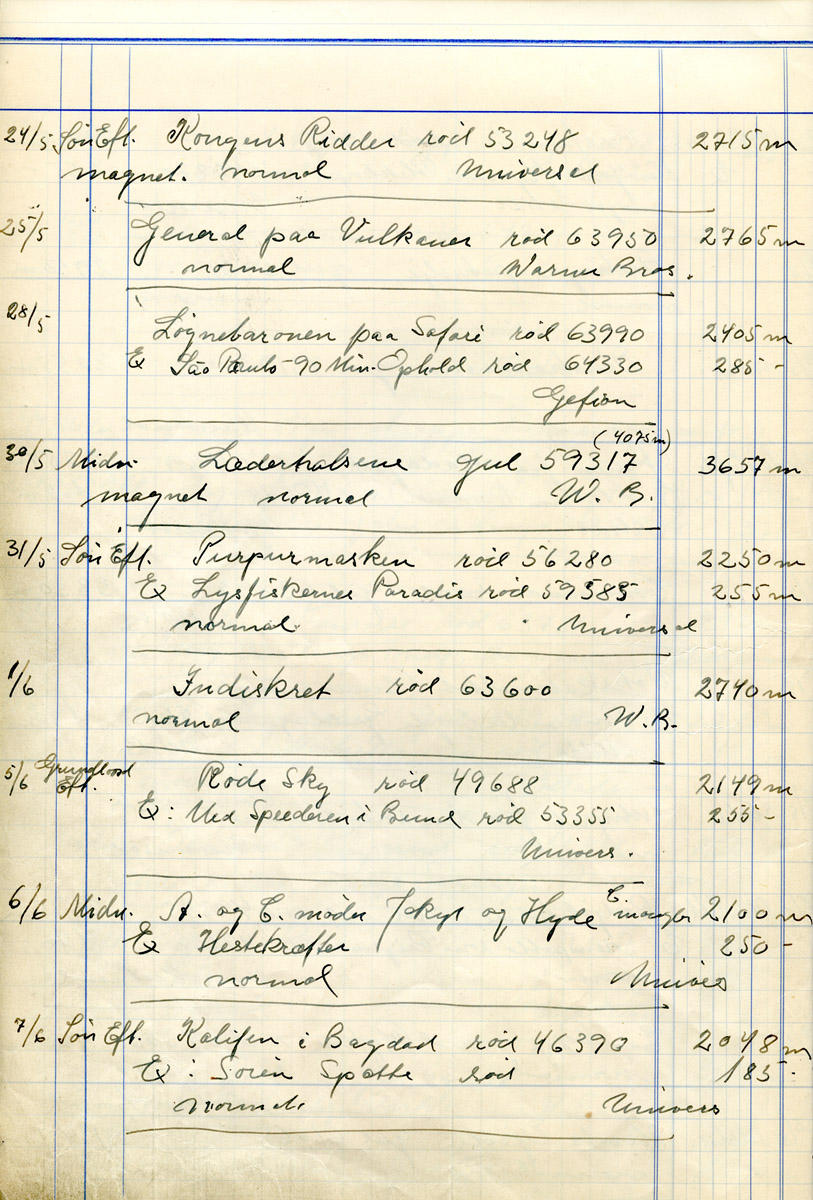 24/5 Søn Eft. Kongens Ridder rød 53248 2715 m
magnet. normal Universal
25/5 General paa Vulkaner rød 63950 2765 m
normal Warner Bros.
28/5
Løgnebaronen paa Safari rød 63990 2405 m
Ex São Paulo - 90 Min. Ophold rød 64330 285 -
Gefion
(4075 m)
30/5 Midn. Læderhalsene gul 59317 3657 m
magnet normal W. B.
31/5 Søn Eft. Purpurmasken rød 56280 2250 m
Ex Lystfiskernes Paradis rød 59385 255 m
normal Universal
1/6 Indiskret rød 63600 2740 m
normal W.B.
5/6 Grundlovsd Eft. Røde Sky rød 49688 2149 m
Ex: Ved Speederen i Bund rød 53355 255 -
Univers.
6/6 Midn. A. og C. møder Jekyl og Hyde C. mangler 2100 m
Ex Hestekræfter 250 -
normal Univers
7/6 Søn Eft. Kalifen i Bagdad rød 46390 2048 m
Ex: Søren Spætte rød 185 -
normal Univers